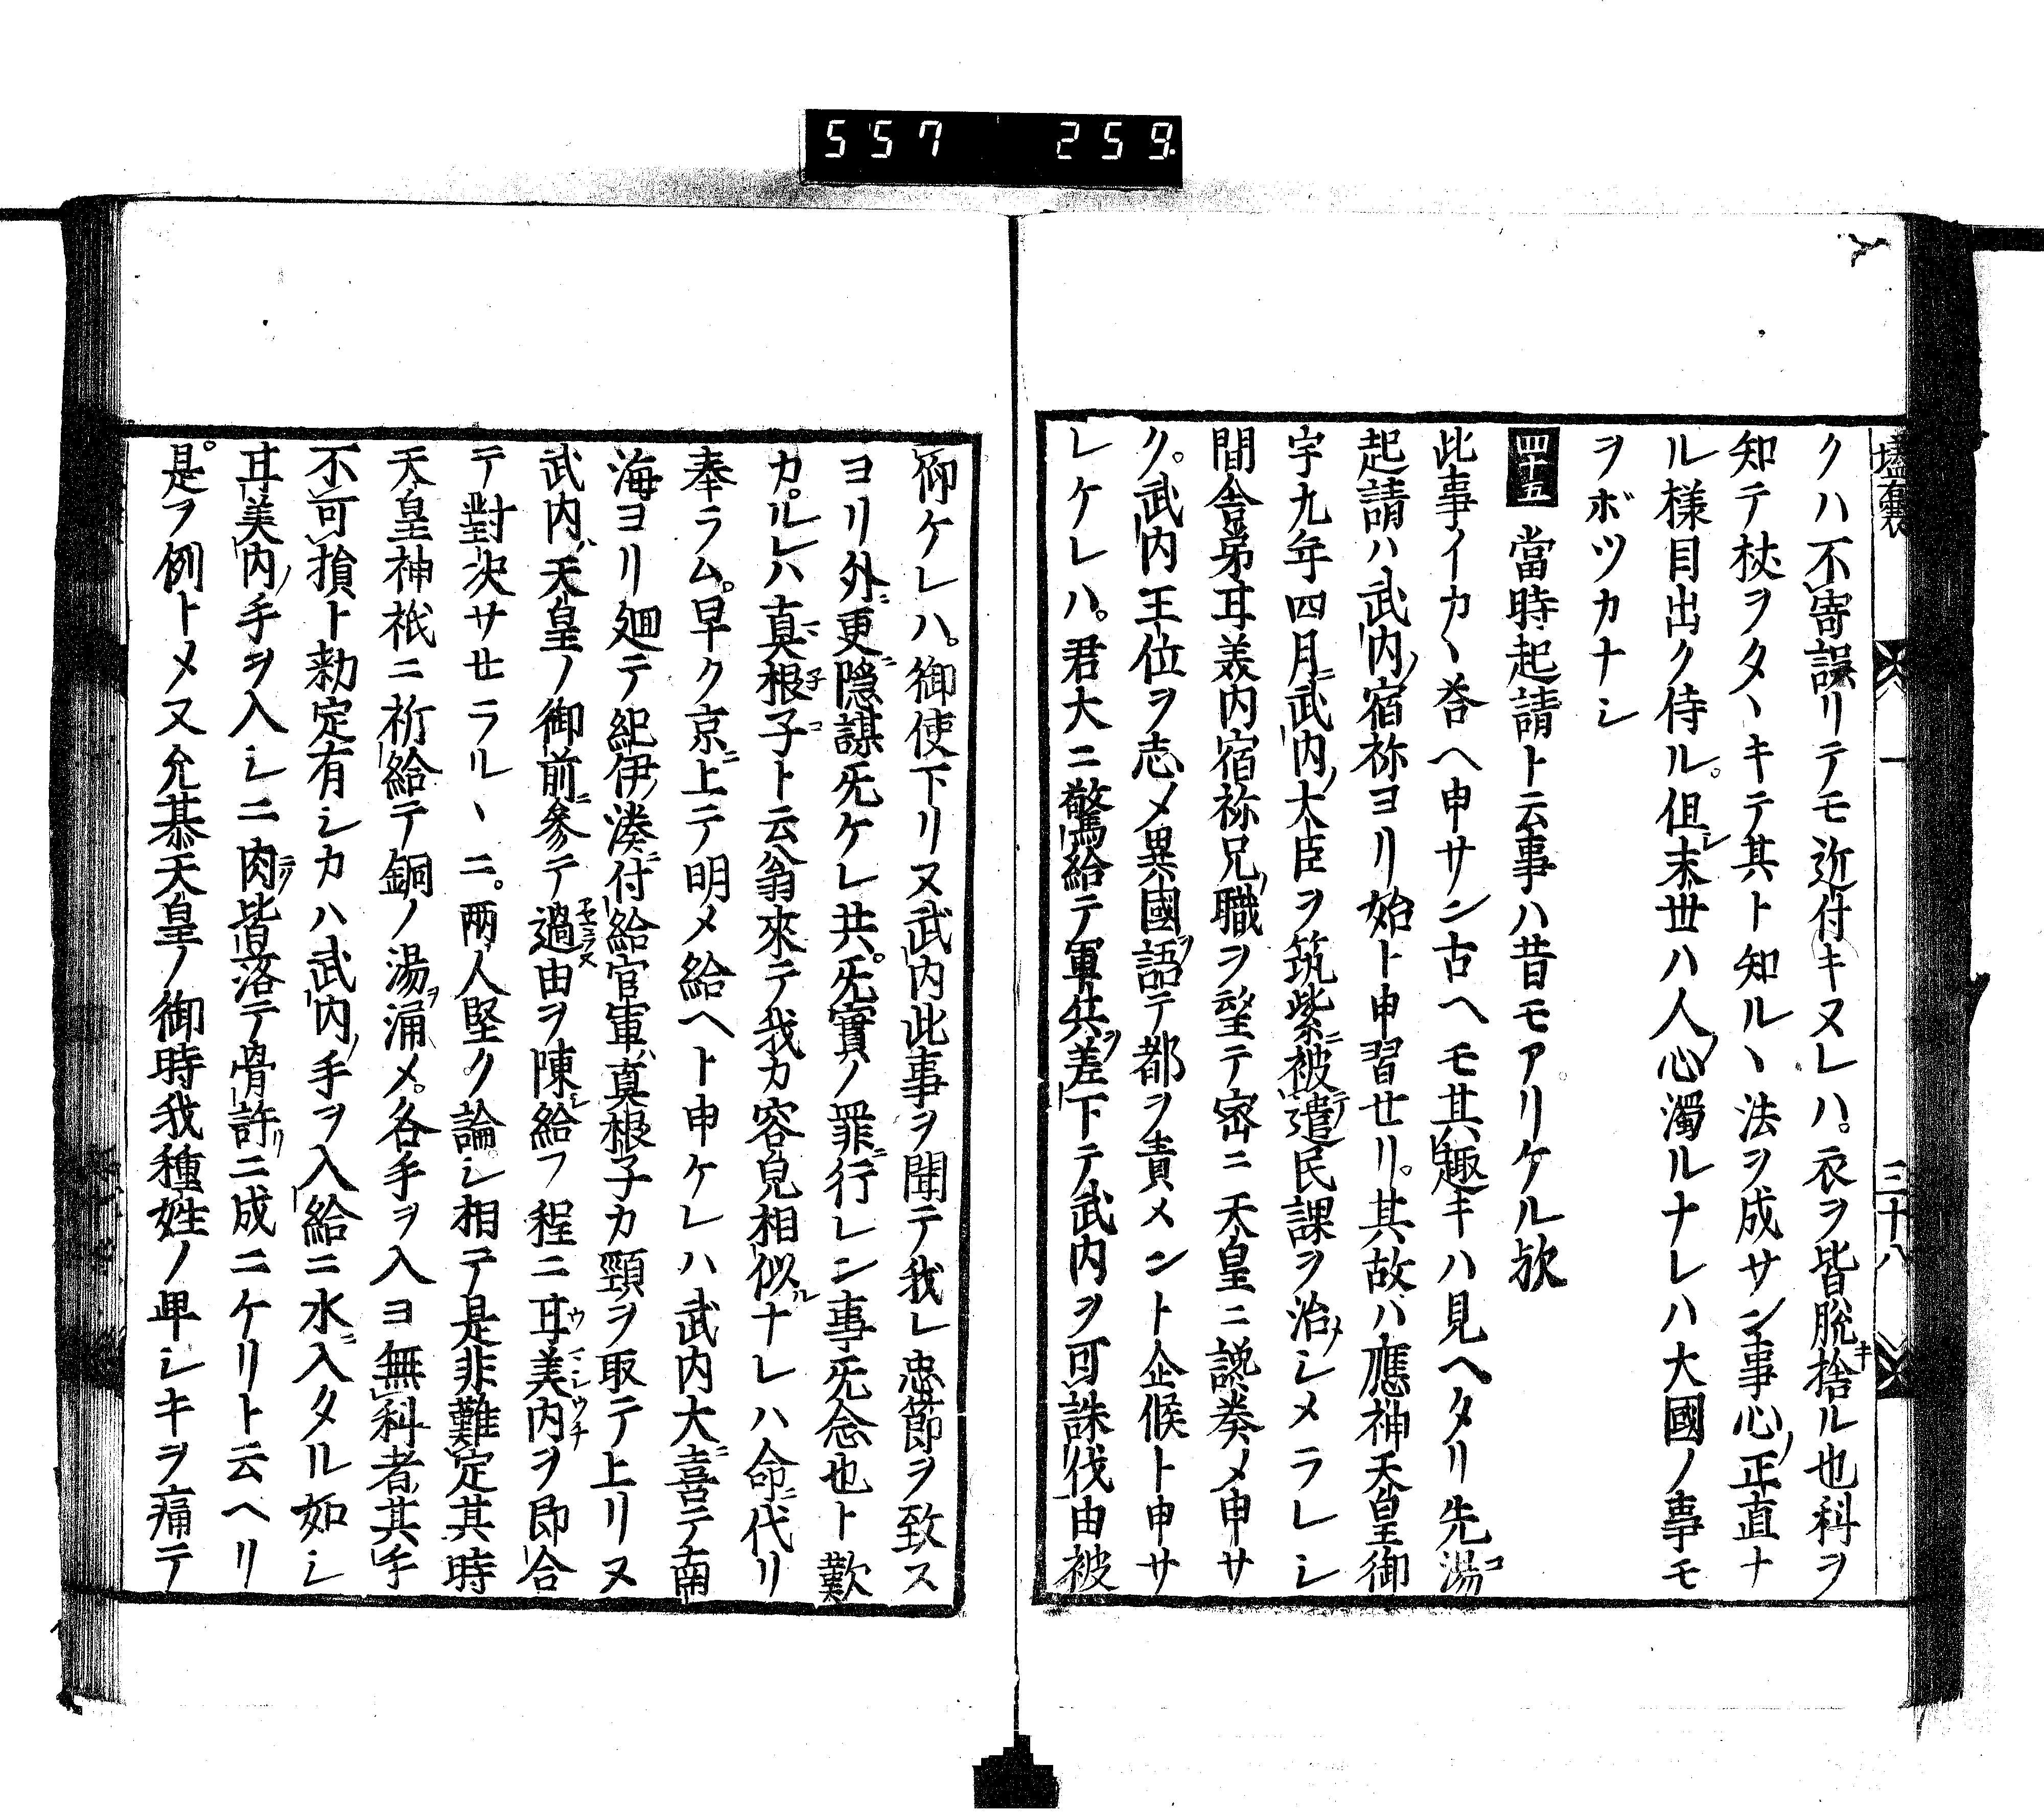 557 259
壒囊 一 三十八
クハ不寄誤リテモ近付キヌレハ。衣ヲ皆脱キ捨ル也科ヲ
知テ杖ヲタヽキテ其ト知ルヽ法ヲ成サン事心ノ正直ナ
ル様目出ク侍ル。但シ末世ハ人ノ心濁ルナレハ大國ノ事モ
ヲボツカナシ
四十五 當時起請ト云事ハ昔モアリケル欤
此事イカヽ答ヘ申サン古ヘモ其趣キハ見ヘタリ先湯
起請ハ武内ノ宿祢ヨリ始ト申習セリ。其故ハ應神天皇御
宇九年四月ニ武内ノ大臣ヲ筑紫ニ被遣テ民課ヲ治メシメラレシ
間舎弟耳美内宿祢兄ノ職ヲ望テ密ニ天皇ニ讒奏メ申サ
ク。武内王位ヲ志メ異國ヲ語テ都ヲ責メント企候ト申サ
レケレハ。君大ニ驚給テ軍兵ヲ差下テ武内ヲ可誅伐由被
仰ケレハ。御使下リヌ武内此事ヲ聞テ我レ忠節ヲ致ス
ヨリ外ニ更ニ隠謀无ケレ共。无實ノ罪ニ行レン事无念也ト歎
カルレハ真根子ト云翁來テ我カ容皃相似ルナレハ命ニ代リ
奉ラム。早ク京ニ上テ明メ給ヘト申ケレハ武内大ニ喜テ南
海ヨリ廻テ紀伊ノ湊ニ付給官軍ハ真根子カ頸ヲ取テ上リヌ
武内ハ天皇ノ御前ニ參テ過由ヲ陳シ給フ程ニ耳美内ヲ即合
テ對決サセラルヽニ。兩人堅ク論シ相テ是非難定其時
天皇神祇ニ祈給テ銅ノ湯ヲ涌メ。各手ヲ入ヨ無科者ノ其手
不可損ト勅定有シカハ武内ノ手ヲ入給ニ水ニ入タル如シ
耳美内ノ手ヲ入シニ肉皆落テ骨許リニ成ニケリト云ヘリ
是。ヲ例トメ又允恭天皇ノ御時我種姓ノ卑シキヲ痛テ